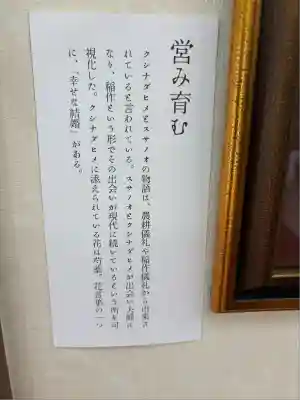 営み育む
クシナダヒメとスサノオの物語は、農耕儀礼や稲作儀礼から由来さ
れていると言われている。スサノオとクシナダヒメが出会い夫婦に
なり、稲作という形でその出会いが現代に続いているという所を可
視化した。クシナダヒメに添えられている花は芍薬。花言葉の一つ
に、「幸せな結婚」がある。